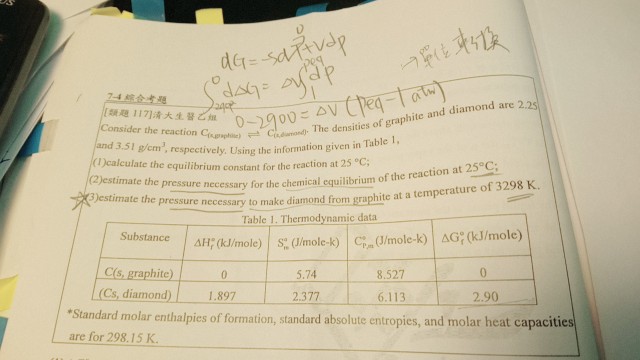 dG = -SdT + Vdp
0
→ 單位轉換
∫ dΔG = ΔV ∫ dp
0 2900 Peq 1
0 - 2900 = ΔV (Peq - 1 atm)
7-4 綜合考題
[類題 117]清大生醫乙組
Consider the reaction C(s,graphite) ⇌ C(s,diamond). The densities of graphite and diamond are 2.25
and 3.51 g/cm³, respectively. Using the information given in Table 1,
(1)calculate the equilibrium constant for the reaction at 25 °C;
(2)estimate the pressure necessary for the chemical equilibrium of the reaction at 25°C;
(3)estimate the pressure necessary to make diamond from graphite at a temperature of 3298 K.
Table 1. Thermodynamic data
Substance ΔH°f (kJ/mole) S°m (J/mole-k) C°p,m (J/mole-k) ΔG°f (kJ/mole)
C(s, graphite) 0 5.74 8.527 0
(Cs, diamond) 1.897 2.377 6.113 2.90
*Standard molar enthalpies of formation, standard absolute entropies, and molar heat capacities
are for 298.15 K.